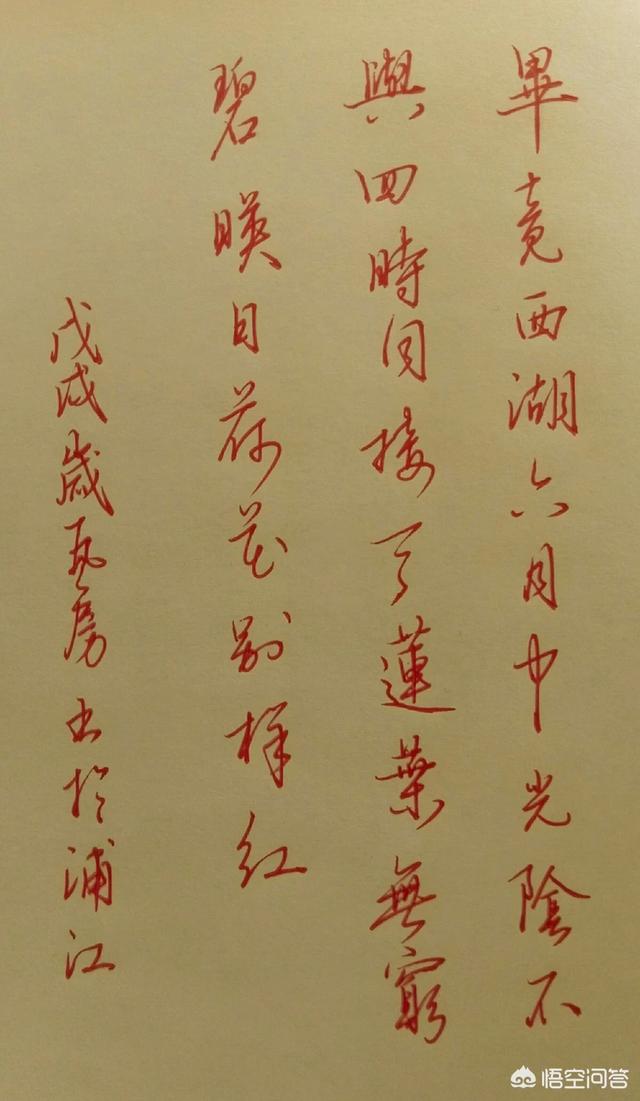 畢竟西湖六月中光陰不
與四時同接天蓮葉無窮
碧暎日荷花别样紅
戊戌歲房书於浦江
悟空问答